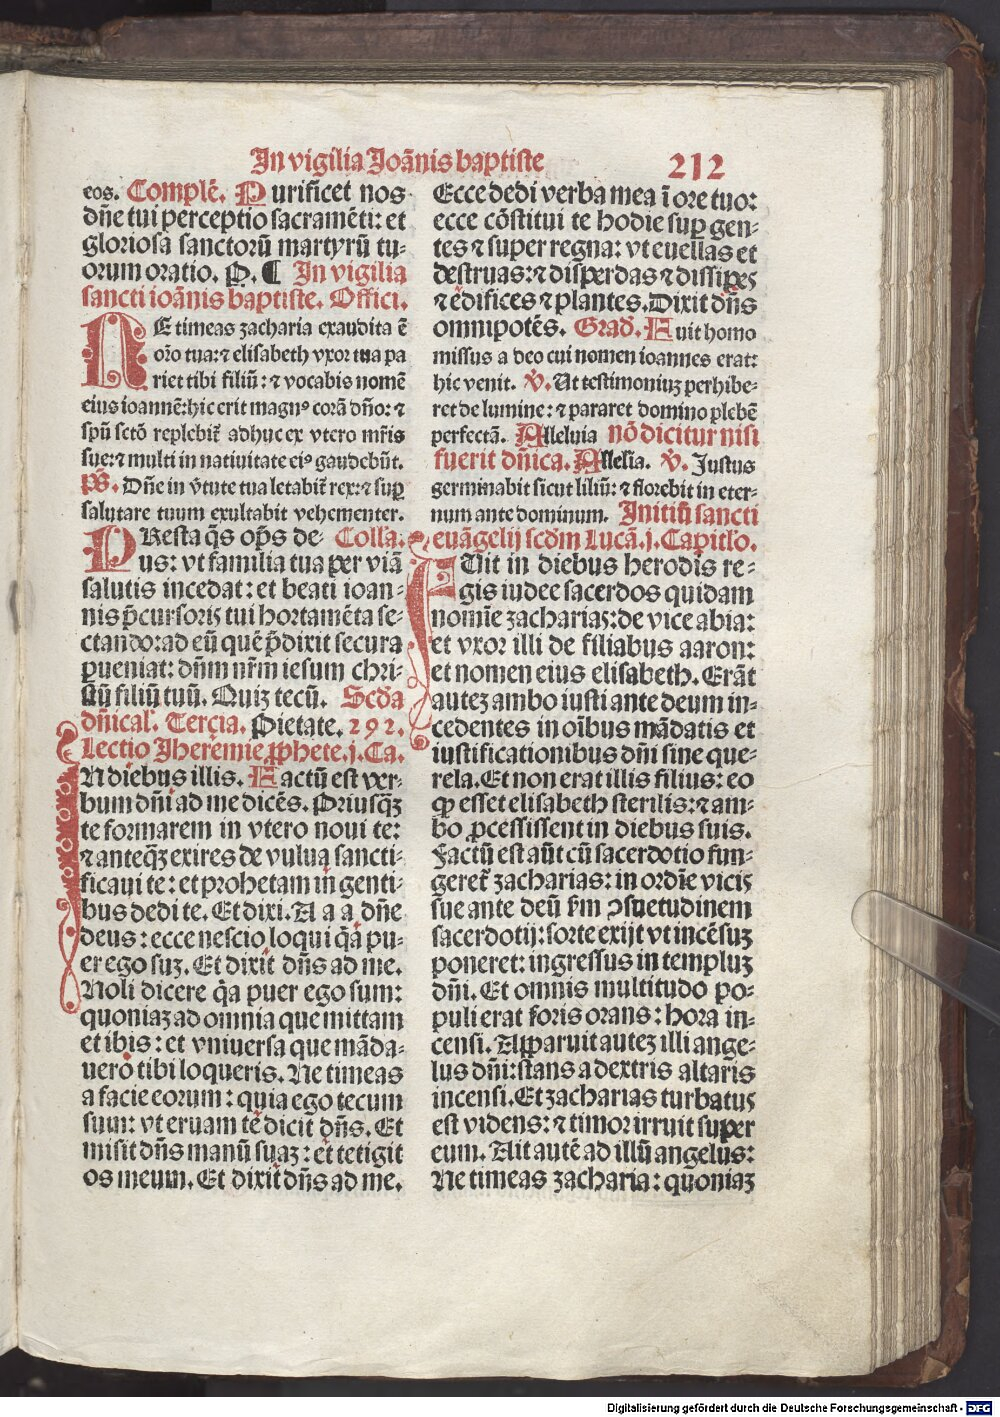 In vigilia Joānis baptiste 212
eos. Complē. Purificet nos
dñe tui perceptio sacramēti: et
gloriosa sanctorū martyrū in-
orum oratio. P. ¶ In vigilia
sancti ioānis baptiste. Offici.
NE timeas zacharia exaudita ē
orō tua: ⁊ elisabeth vxor tua pa
riet tibi filiū: ⁊ vocabis nomē
eius ioannē: hic erit magnꝰ corā dño: ⁊
spū sctō replebit̄ adhuc ex vtero mr̄is
sue: ⁊ multi in natiuitate eiꝰ gaudebūt.
ps̄. Dñe in v̄tute tua letabit̄ rex: ⁊ suꝑ
salutare tuum exultabit vehementer.
PResta q̄s op̄s de- Collā.
us: vt familia tua per viā
salutis incedat: et beati ioan-
nis p̄cursoris tui hortamēta se-
ctando: ad eū quē p̄dixit secura
ꝑueniat: dñm nr̄m iesum chri-
stū filiū tuū. Qui⁊ tecū. Scd̄a
dñical. Tercia. Pietate. 292.
Lectio Iheremie ꝓphete. j. Ca.
IN diebus illis. Factū est ver-
bum dñi ad me dicēs. Priusq̄⁊
te formarem in vtero noui te:
⁊ anteq̄⁊ exires de vulua sancti-
ficaui te: et prohetam in genti-
bus dedi te. Et dixi. A a a dñe
deus: ecce nescio loqui q̄a pu-
er ego suꝫ. Et dixit dñs ad me.
Noli dicere q̄a puer ego sum:
quoniaꝫ ad omnia que mittam
et ibis: et vniuersa que māda-
uero tibi loqueris. Ne timeas
a facie eorum: quia ego tecum
sum: vt eruam te dicit dñs. Et
misit dñs manū suaꝫ: et tetigit
os meum. Et dixit dñs ad me.
Ecce dedi verba mea ī ore tuo:
ecce cōstitui te hodie suꝑ gen-
tes ⁊ super regna: vt euellas et
destruas: ⁊ disperdas ⁊ dissipes
⁊ edifices ⁊ plantes. Dixit dñs
omnipotēs. Grad. Fuit homo
missus a deo cui nomen ioannes erat:
hic venit. v̄. Ut testimoniuꝫ perhibe-
ret de lumine: ⁊ pararet domino plebē
perfectā. Alleluia nō dicitur nisi
fuerit dñica. Allelia. v̄. Justus
germinabit sicut liliū: ⁊ florebit in eter-
num ante dominum. Initiū sancti
euāgelij scd̄m Lucā. j. Capitlo.
FUit in diebus herodis re-
gis iudee sacerdos quidam
nomīe zacharias: de vice abia:
et vxor illi de filiabus aaron:
et nomen eius elisabeth. Erāt
auteꝫ ambo iusti ante deum in-
cedentes in oībus mādatis et
iustificationibus dñi sine que-
rela. Et non erat illis filius: eo
qꝫ esset elisabeth sterilis: ⁊ am-
bo ꝓcessissent in diebus suis.
Factū est aūt cū sacerdotio fun-
geret̄ zacharias: in ordīe vicis
sue ante deū fm ꝯsuetudinem
sacerdotij: sorte exijt vt incēsuꝫ
poneret: ingressus in templuꝫ
dñi. Et omnis multitudo po-
puli erat foris orans: hora in-
censi. Apparuit auteꝫ illi ange-
lus dñi: stans a dextris altaris
incensi. Et zacharias turbatus
est videns: ⁊ timor irruit super
eum. Ait autē ad illū angelus:
Ne timeas zacharia: quoniaꝫ
Digitalisierung gefördert durch die Deutsche Forschungsgemeinschaft - DFG